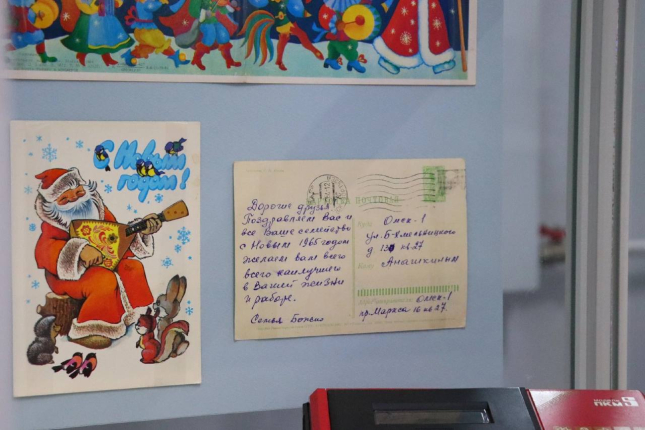 С Новым
годом!
Дорогие друзья
Поздравляем Вас и
все Ваше семейство
с Новым 1965 годом
желаем вам всего
всего наилучшего
в Вашей жизни
и работе.
Семья
Омск-1
ул. Б-Хмельницкого
д кв 27
Анашкиным
Омск-1
пр. Маркса 10 кв 27.